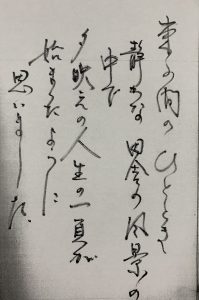 束の間のひととき
静かな田舎の風景の
中で
夕映えの人生の一頁が
始またように
思いました。